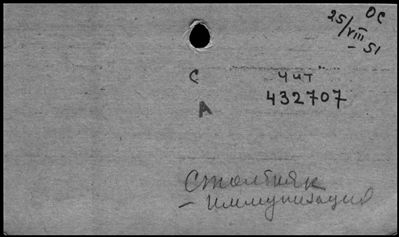 ОС
25/VIII
- 51
С
"чит"
432707
А
Столбняк
- иммунизация